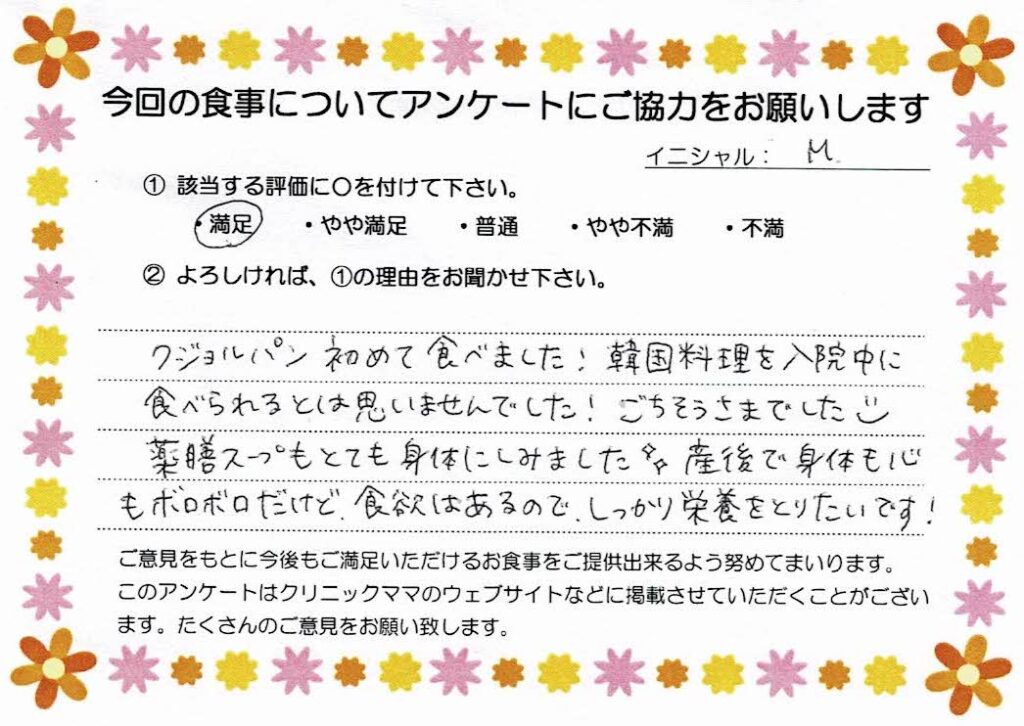 今回の食事についてアンケートにご協力をお願いします
イニシャル： M.
① 該当する評価に〇を付けて下さい。
・満足 ・やや満足 ・普通 ・やや不満 ・不満
② よろしければ、①の理由をお聞かせ下さい。
クジョルパン 初めて食べました！韓国料理を入院中に
食べられるとは思いませんでした！ごちそうさまでした
薬膳スープもとても身体にしみました 産後で身体も心
もボロボロだけど、食欲はあるので、しっかり栄養をとりたいです！
ご意見をもとに今後もご満足いただけるお食事をご提供出来るよう努めてまいります。
このアンケートはクリニックママのウェブサイトなどに掲載させていただくことがござい
ます。たくさんのご意見をお願い致します。